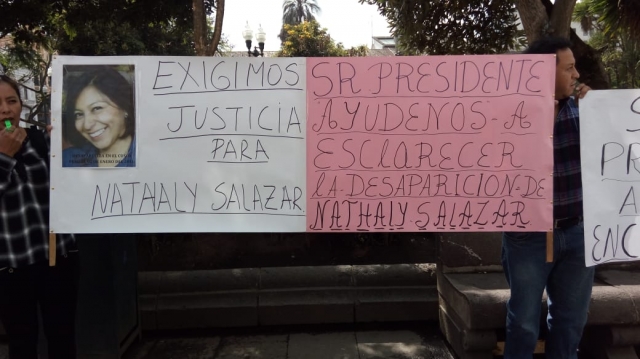 EXIGIMOS
JUSTICIA
PARA
NATHALY SALAZAR
SR PRESIDENTE
AYUDENOS-A
ESCLARECER
LA-DESAPARICION-DE
NATHALY SALAZAR
S
PR
A
ENC